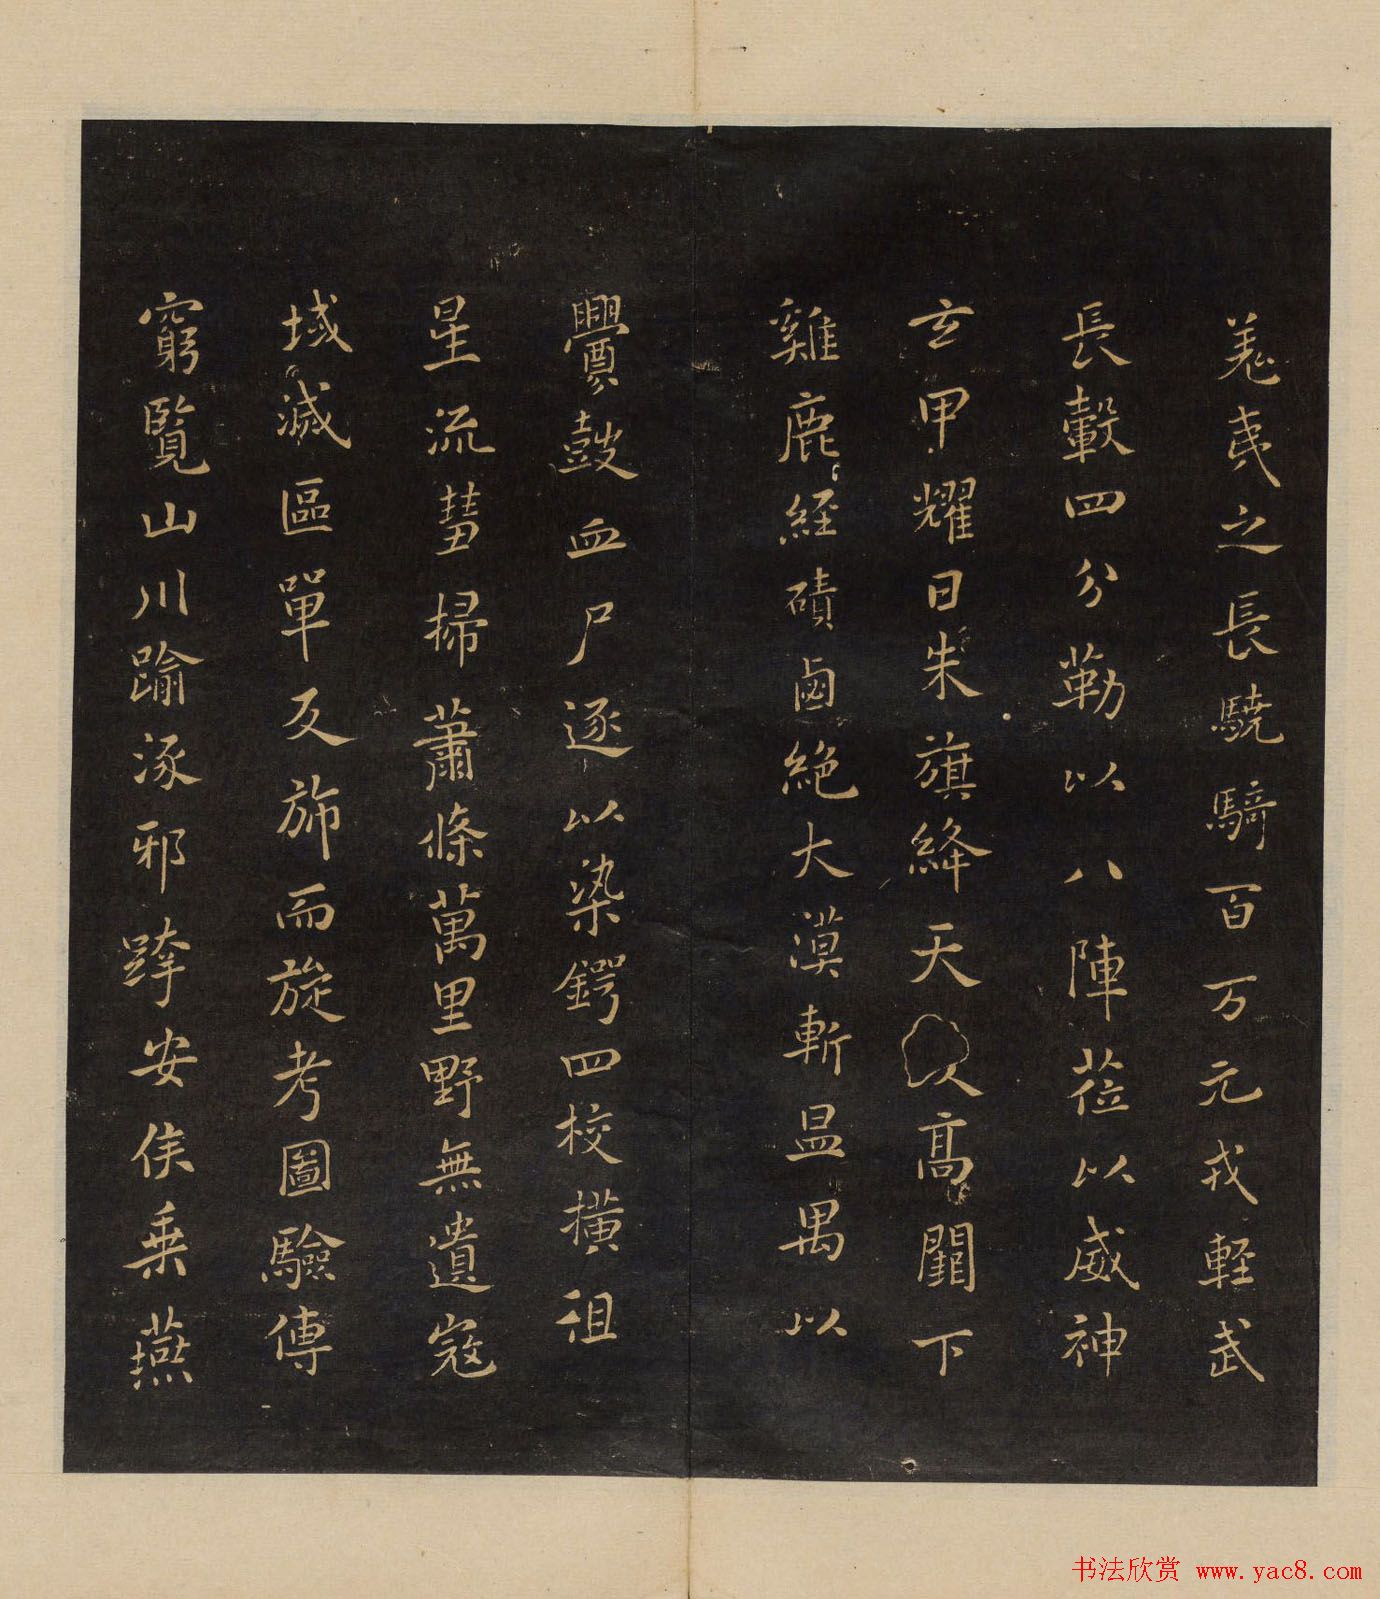 羌夷之長驍騎百万元戎輕武
長轂四分勒以八陣莅以威神
玄甲耀日朱旗絳天 高闕下
雞鹿經磧鹵絕大漠斬昷禺以
釁鼓血尸逐以染鍔四校橫徂
星流彗掃蕭條萬里野無遺寇
域滅區單反斾而旋考圖驗傳
窮覽山川踰涿邪跨安侯乗燕
书法欣赏 www.yac8.com